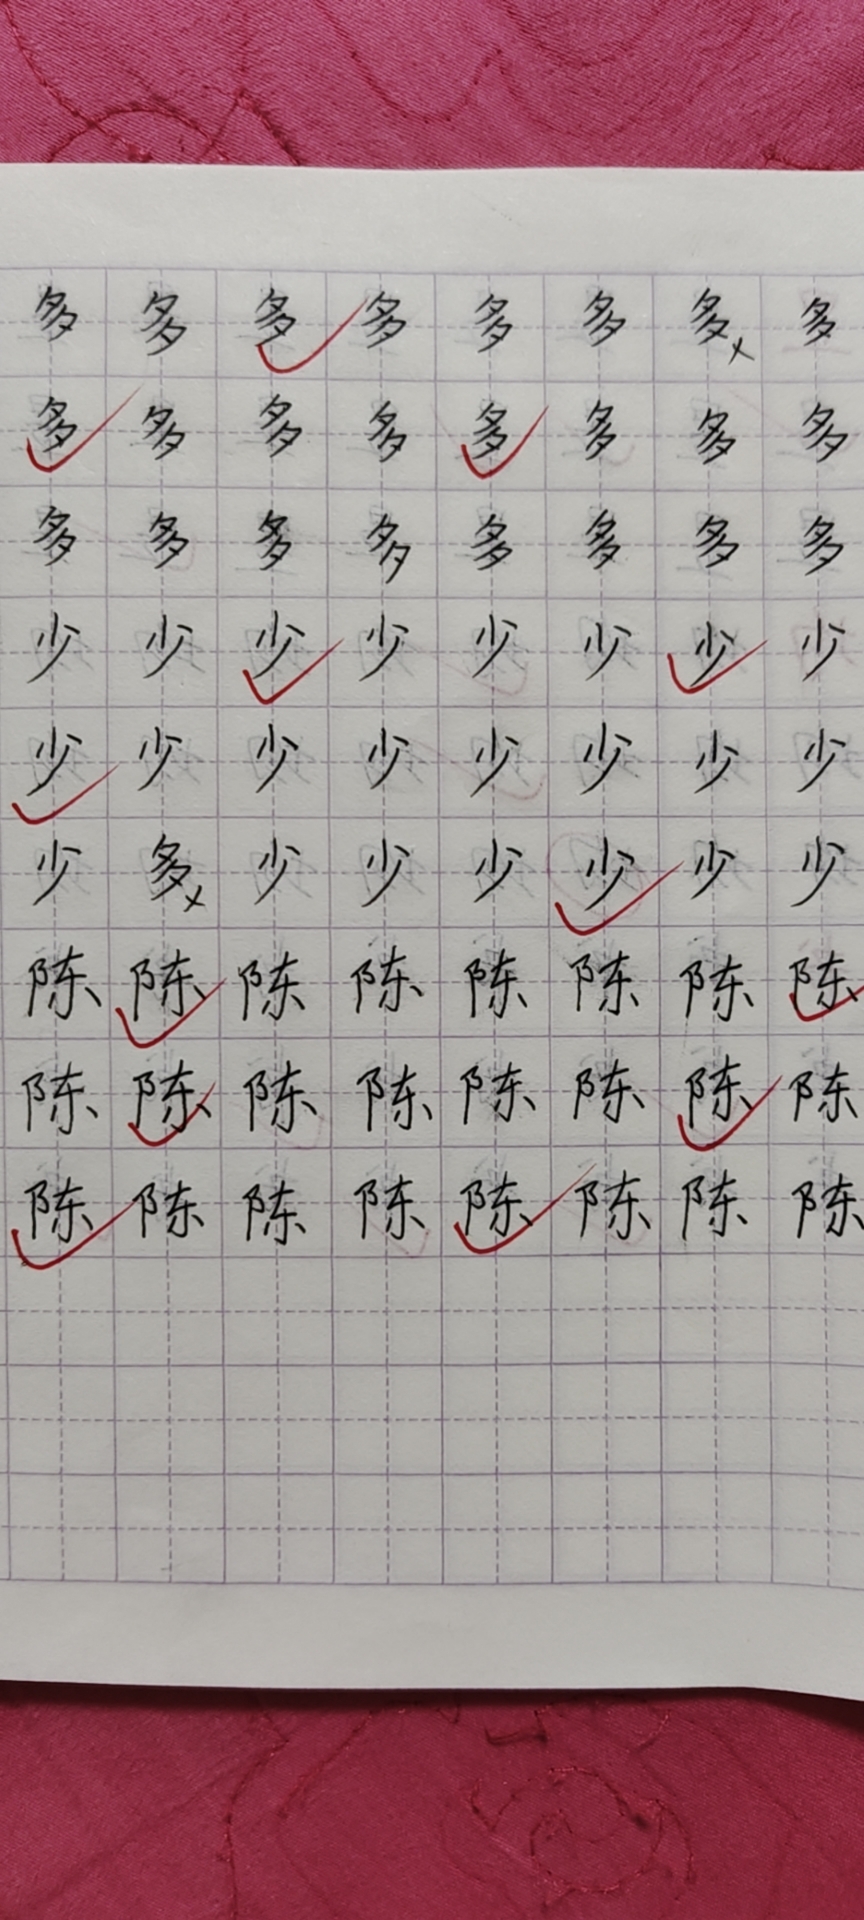 多多多多多多多多
多多多多多多多多
多多多多多多多多
少少少少少少少少
少少少少少少少少
少多少少少少少少
陈陈陈陈陈陈陈陈
陈陈陈陈陈陈陈陈
陈陈陈陈陈陈陈陈